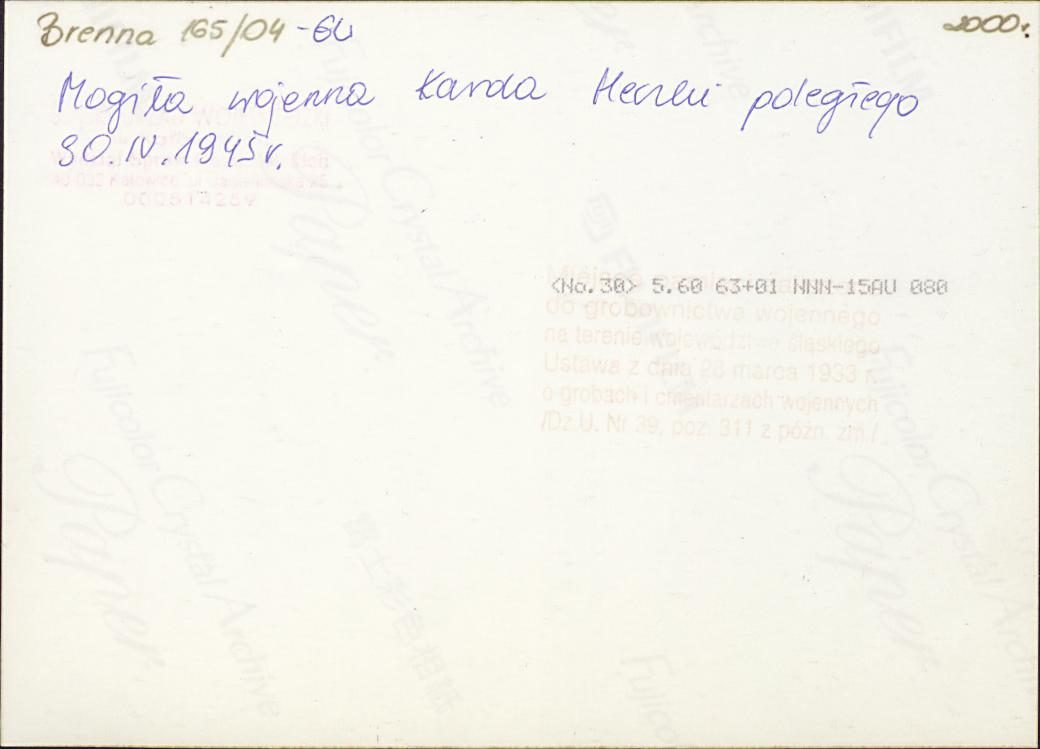 Brenna 165/04-GU
2000r.
Mogiła wojenna Karola Heczki poległego
30.IV.1945r.
40-032 Katowice ul. Jagiellońska 25
000514259
<No.30> 5.60 63+01 NNN-15AU 080
do grobownictwa wojennego
na terenie województwa śląskiego
Ustawa z dnia 28 marca 1933 r.
o grobach i cmentarzach wojennych
/Dz.U. Nr 39, poz. 311 z późn. zm./
FUJIFILM
Fujicolor Crystal Archive
Paper
Fujicolor Crystal Archive
Paper
Fujicolor Crystal Archive
Paper
富士彩色相紙